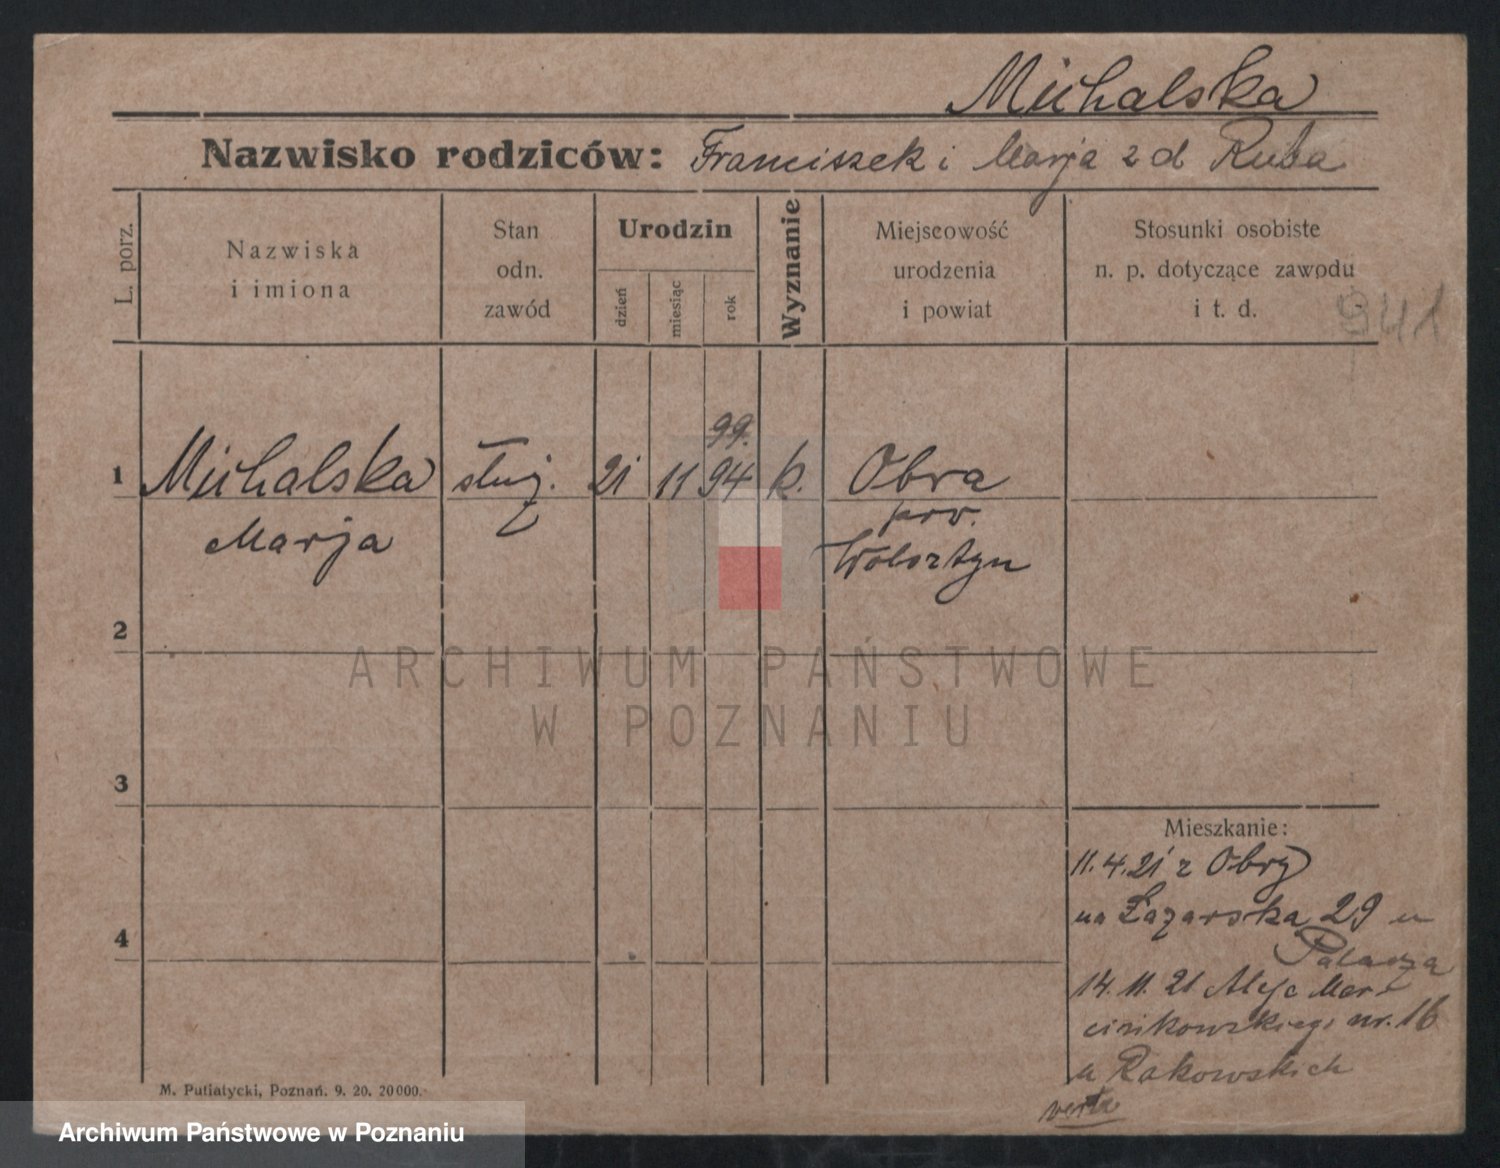 Michalska
Nazwisko rodziców: Franciszek i Marja z d Ruba
L. porz.
Nazwiska
i imiona
Stan
odn.
zawód
Urodzin
dzień
miesiąc
rok
Wyznanie
Miejscowość
urodzenia
i powiat
Stosunki osobiste
n. p. dotyczące zawodu
i t. d.
941
99.
1 Michalska służ. 21 11 94 k. Obra
Marja
pow.
Wolsztyn
2
ARCHIWUM PAŃSTWOWE
W POZNANIU
3
Mieszkanie:
11.4.21 z Obry
na Łazarska 29 u
4
Palacza
14.11.21 Aleje Mar-
cinkowskiego nr. 16
u Rakowskich
verte
M. Putiatycki, Poznań. 9. 20. 20000.
Archiwum Państwowe w Poznaniu